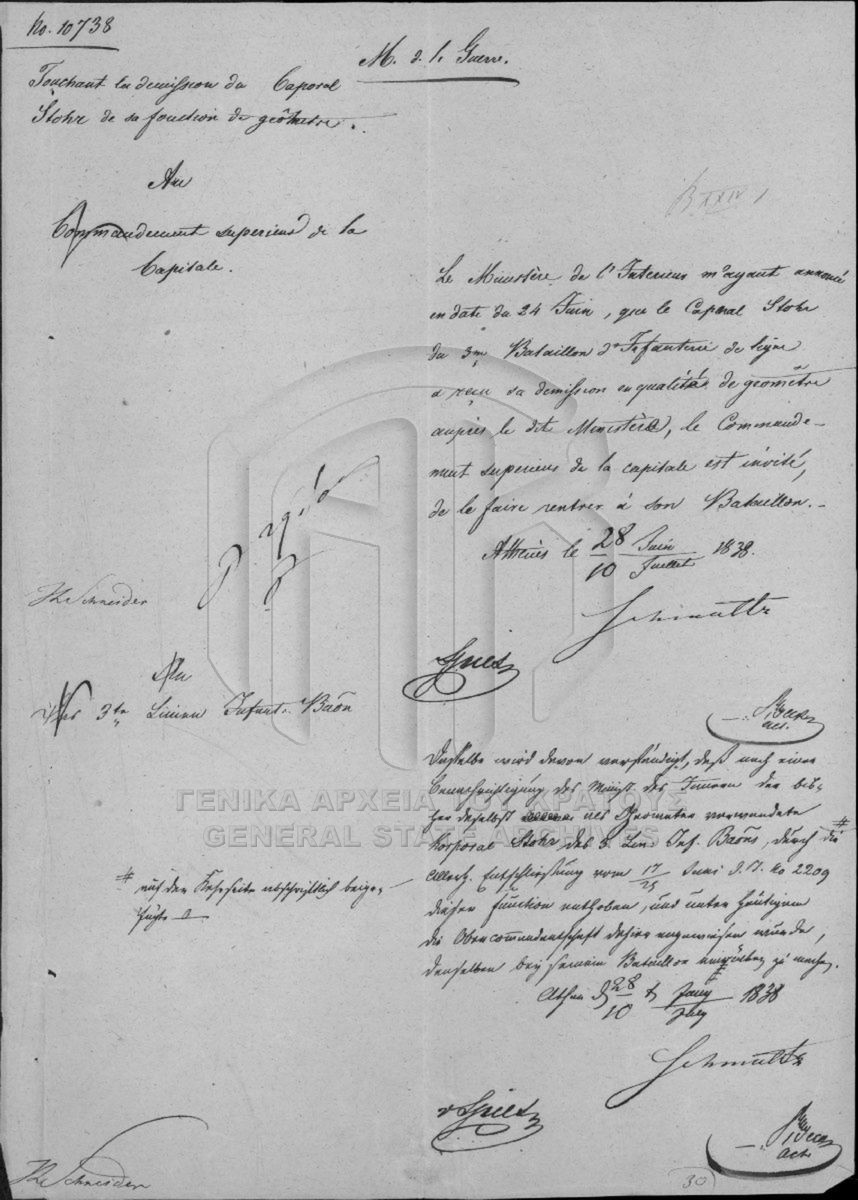 No. 10738
M. d. l. Guerre.
Touchant la demission du Caporal
Stohr de sa fonction de géomètre.
Au
Commandement superieur de la
Capitale.
B XXIV 1
Le Ministère de l'Interieur m'ayant annoncé
en date du 24 Juin, que le Caporal Stohr
du 3me Bataillon d'Infanterie de ligne
a reçu sa demission en qualité de geomètre
auprès le dit Ministère, le Commande-
ment superieur de la capitale est invité,
de le faire rentrer à son Bataillon.
Athènes le 28/10 Juin/Juillet 1838.
Schmaltz
HSchneider
Spies
An
das 3te Linien Infant. Baōn
act.
Dasselbe wird davon verständigt, daß nach einer
Benachrichtigung des Minist. des Innern der bis-
her daselbst als Geometer verwendete
Korporal Stohr des 3. Lin. Inf. Baōns, durch die #
allerh. Entschließung vom 17/29 Juni d. J. No 2209
# auf der Kehrseite abschriftlich beige-
fügte
dieser Function enthoben, und unter Heutigem
die Obercommandantschaft dahier angewiesen wurde,
denselben bey seinem Bataillon einrücken zu machen.
Athen d 28/10 Juny/July 1838
Schmaltz
v Spies
act.
HSchneider
30
ΓΕΝΙΚΑ ΑΡΧΕΙΑ ΤΟΥ ΚΡΑΤΟΥΣ
GENERAL STATE ARCHIVES